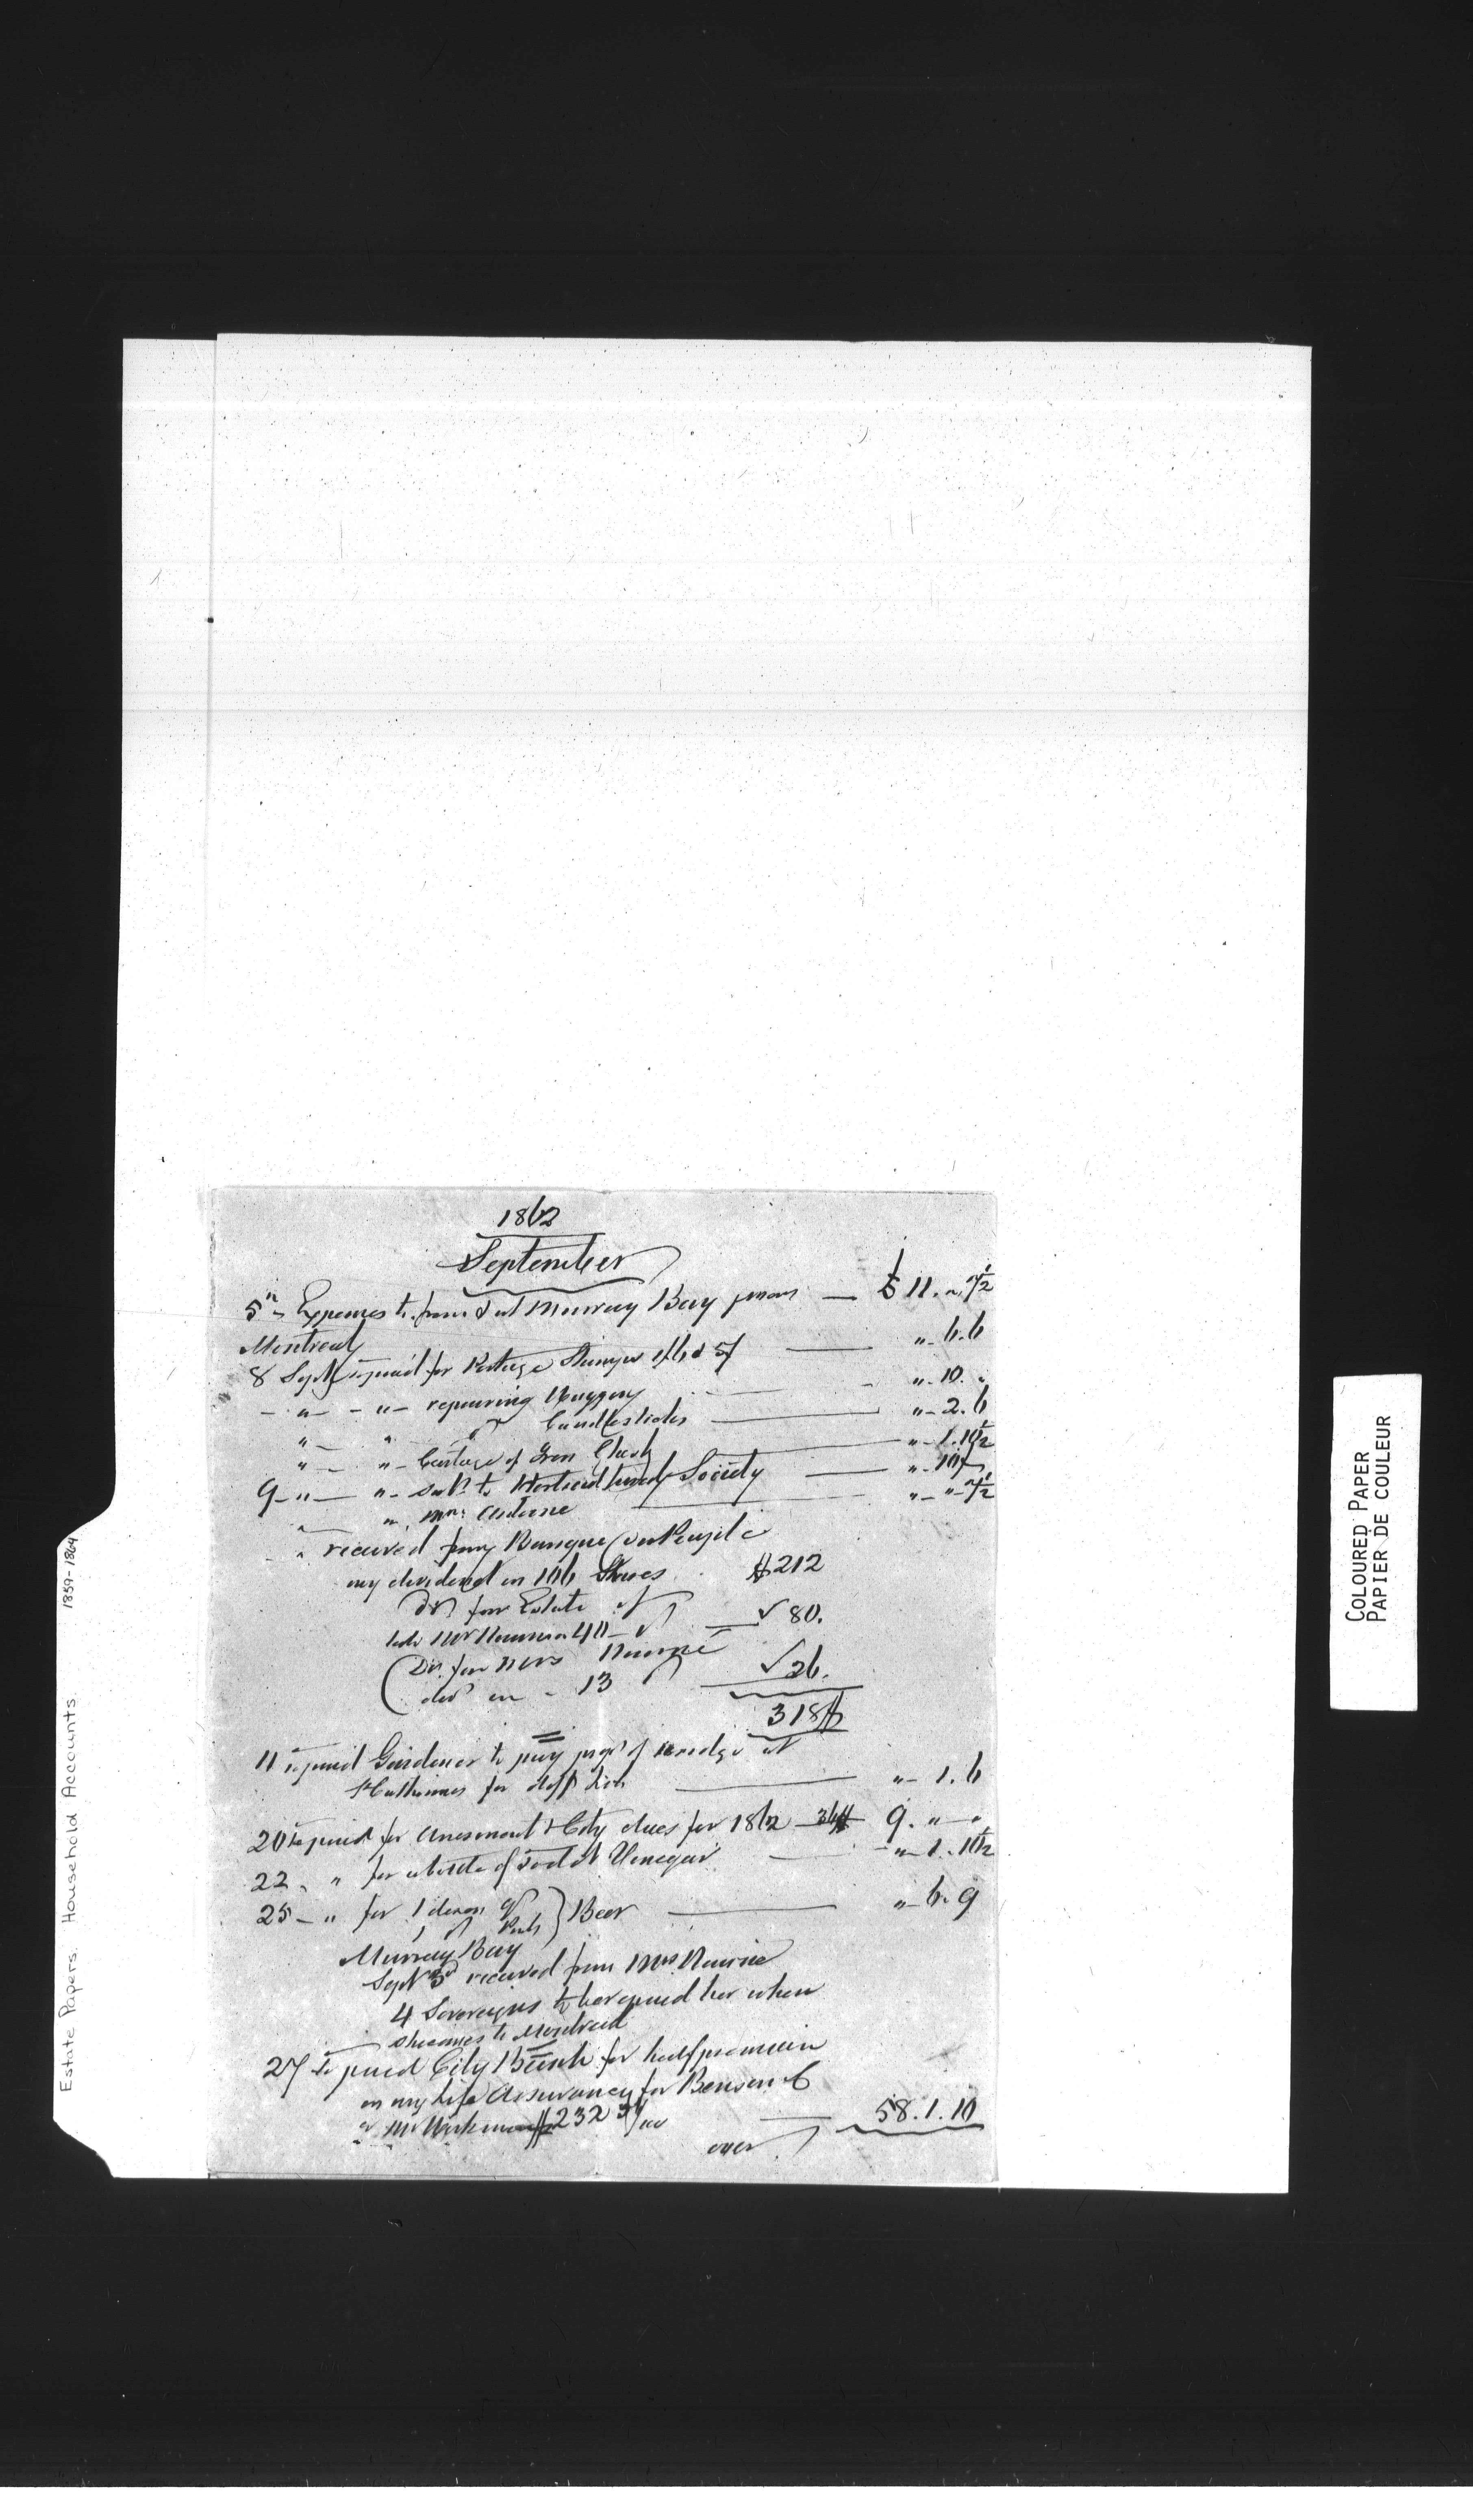 1862
September
5" Expenses to, from & at Murray Bay from — £ 11. „ 7½
Montreal
8 Sept paid for Postage Stamps 1/6 & 5/ — „ 6. 6
" — " — repairing Buggy — „ 10. „
" — " Candlesticks — „ 2. 6
" — " — Cartage of Iron Chest — „ 1. 10½
9 — " — " — sub. to Horticultural Society — „ 10
" Mrs. Antoine — „ „ 7½
" received from Banque du Peuple
my dividend on 106 Shares $212
Do for Estate of
late Mr Nairn 40 — 80.
Do. for Mrs Nairne
div on - 13 26.
318$
11 to paid Gardener to pay
St Catherines for — „ 1. 6
20 to paid for Assessment & City dues for 1862 — 36$ 9. „ — „
22 " for a bottle of Vinegar — „ 1. 10½
25 — " for 1 dozen Qts } Beer — „ 6. 9
1 do Pints
Murray Bay
Sept 3d received from Mrs Nairne
4 Sovereigns to be repaid her when
she comes to Montreal
27 to paid City Bank for half premium
on my life Assurance for Benson & C
& Mr Workman $232 37/100 — 58. 1. 10
over
Estate Papers. Household Accounts. 1859-1864
COLOURED PAPER
PAPIER DE COULEUR